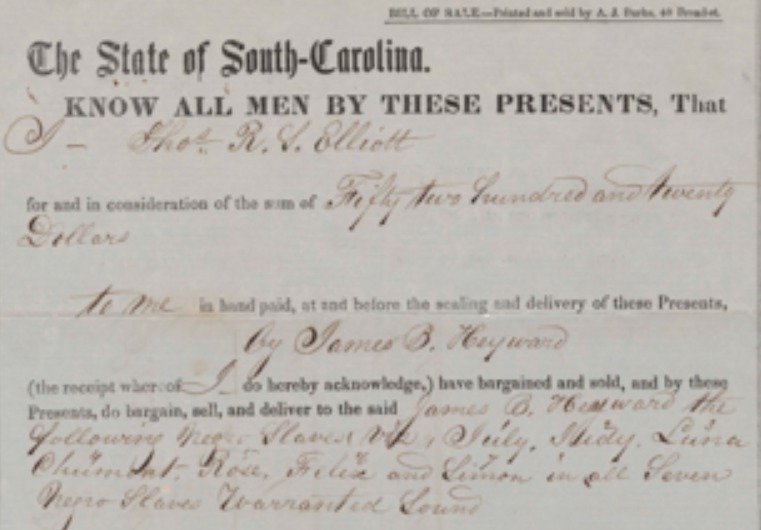 BILL OF SALE.—Printed and sold by A. J. Burke, 40 Broad-st.
The State of South-Carolina.
KNOW ALL MEN BY THESE PRESENTS, That
I – Thos. R. S. Elliott
for and in consideration of the sum of Fifty two hundred and twenty
Dollars
to me in hand paid, at and before the sealing and delivery of these Presents,
by James B. Heyward
(the receipt whereof I do hereby acknowledge,) have bargained and sold, and by these
Presents, do bargain, sell, and deliver to the said James B. Heyward the
following Negro Slaves Viz, July, Luna
Rose, Felix and Simon in all Seven
Negro Slaves Warranted Sound